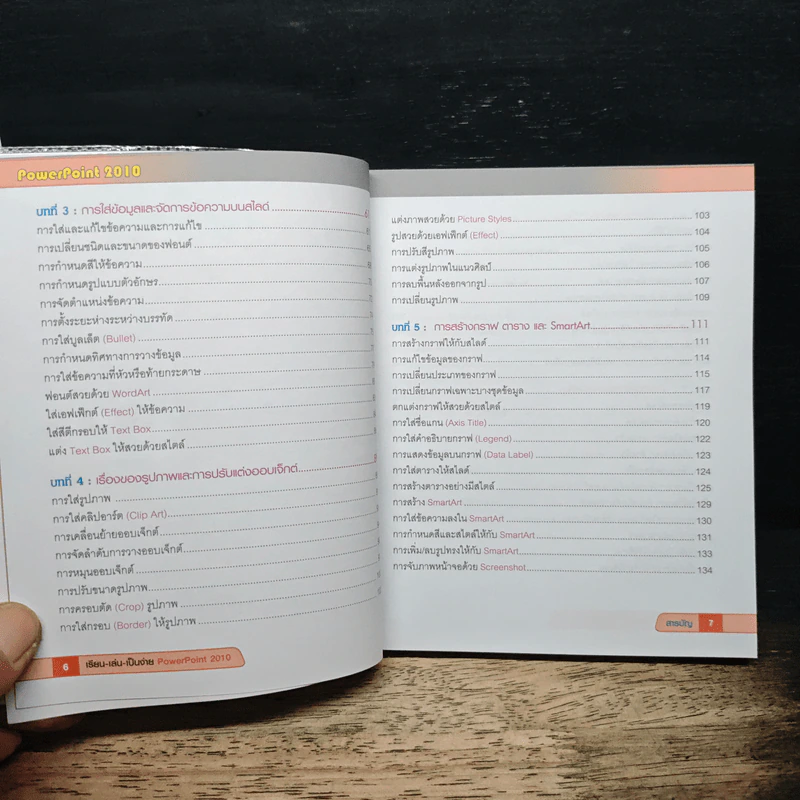 PowerPoint 2010
บทที่ 3 : การใส่ข้อมูลและจัดการข้อความบนสไลด์
การใส่และแก้ไขข้อความและการแก้ไข
การเปลี่ยนชนิดและขนาดของฟอนต์
การกำหนดสีให้ข้อความ
การกำหนดรูปแบบตัวอักษร
การจัดตำแหน่งข้อความ
การตั้งระยะห่างระหว่างบรรทัด
การใส่บูลเล็ต (Bullet)
การกำหนดทิศทางการวางข้อมูล
การใส่ข้อความที่หัวหรือท้ายกระดาษ
ฟอนต์สวยด้วย WordArt
ใส่เอฟเฟ็กต์ (Effect) ให้ข้อความ
ใส่สีตีกรอบให้ Text Box
แต่ง Text Box ให้สวยด้วยสไตล์
บทที่ 4 : เรื่องของรูปภาพและการปรับแต่งออบเจ็กต์
การใส่รูปภาพ
การใส่คลิปอาร์ต (Clip Art)
การเคลื่อนย้ายออบเจ็กต์
การจัดลำดับการวางออบเจ็กต์
การหมุนออบเจ็กต์
การปรับขนาดรูปภาพ
การครอบตัด (Crop) รูปภาพ
การใส่กรอบ (Border) ให้รูปภาพ
6 เรียน-เล่น-เป็นง่าย PowerPoint 2010
แต่งภาพสวยด้วย Picture Styles 103
รูปสวยด้วยเอฟเฟ็กต์ (Effect) 104
การปรับสีรูปภาพ 105
การแต่งรูปภาพในแนวศิลป์ 106
การลบพื้นหลังออกจากรูป 107
การเปลี่ยนรูปภาพ 109
บทที่ 5 : การสร้างกราฟ ตาราง และ SmartArt 111
การสร้างกราฟให้กับสไลด์ 111
การแก้ไขข้อมูลของกราฟ 114
การเปลี่ยนประเภทของกราฟ 115
การเปลี่ยนกราฟเฉพาะบางชุดข้อมูล 117
ตกแต่งกราฟให้สวยด้วยสไตล์ 119
การใส่ชื่อแกน (Axis Title) 120
การใส่คำอธิบายกราฟ (Legend) 122
การแสดงข้อมูลบนกราฟ (Data Label) 123
การใส่ตารางให้สไลด์ 124
การสร้างตารางอย่างมีสไตล์ 125
การสร้าง SmartArt 129
การใส่ข้อความลงใน SmartArt 130
การกำหนดสีและสไตล์ให้กับ SmartArt 131
การเพิ่ม/ลบรูปทรงให้กับ SmartArt 133
การจับภาพหน้าจอด้วย Screenshot 134
สารบัญ 7